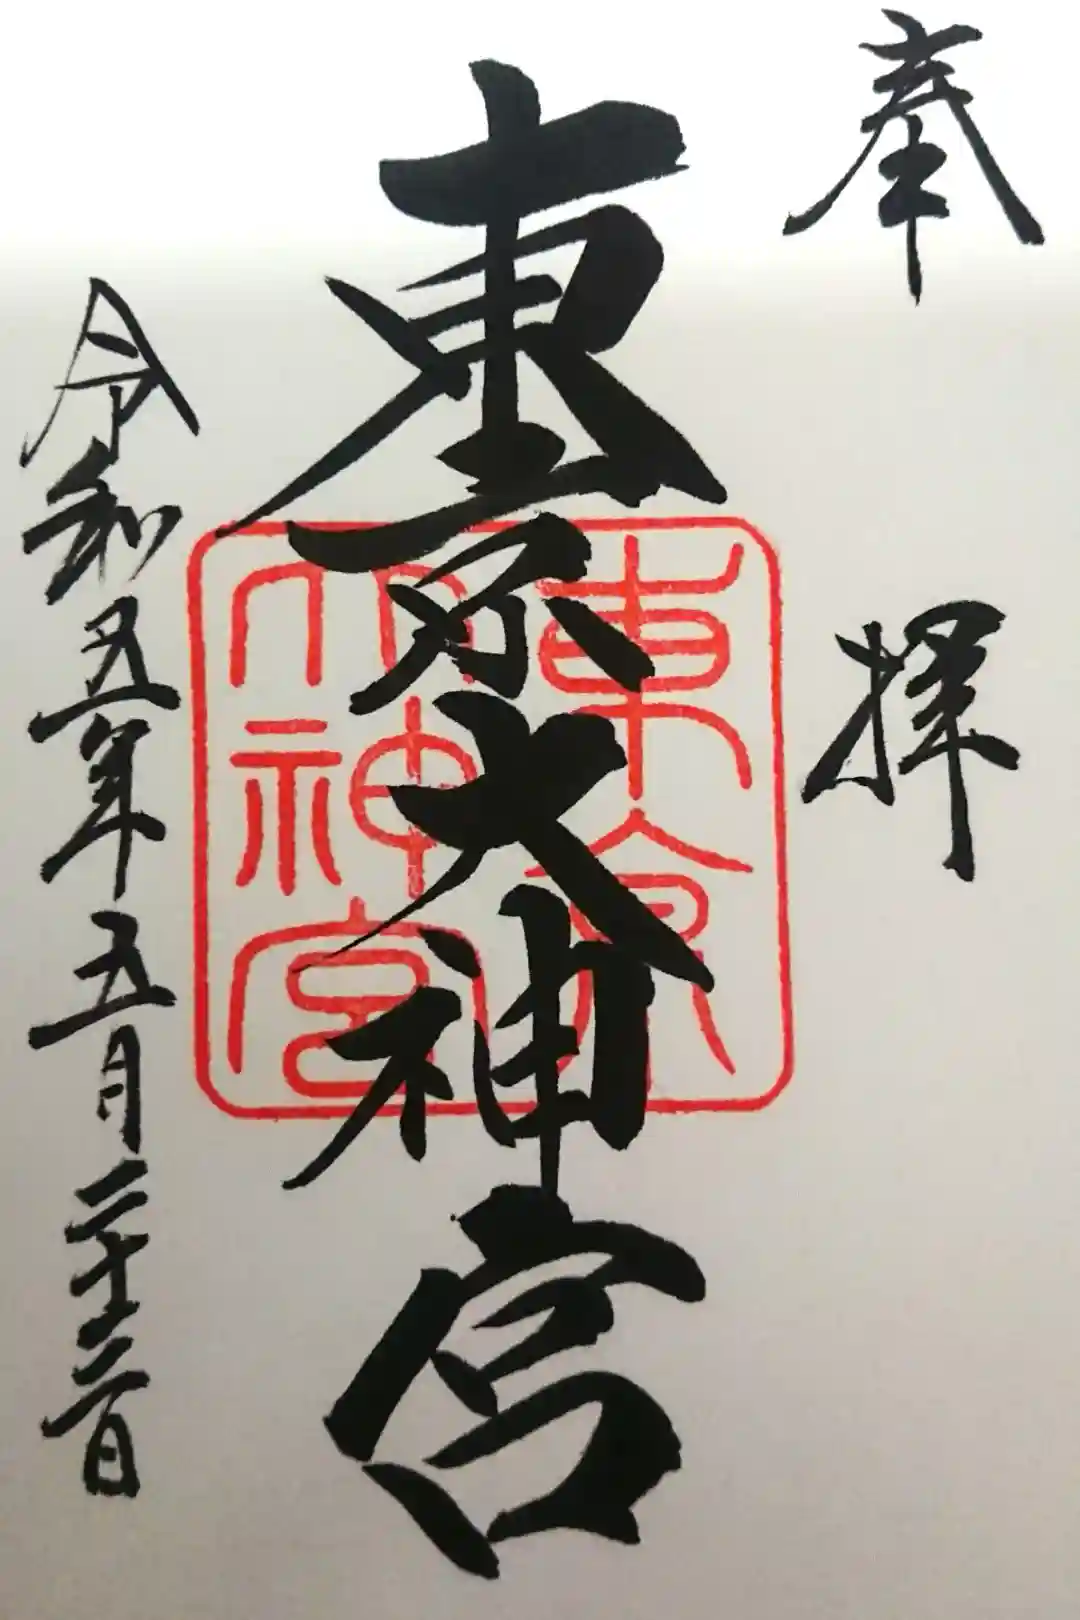 奉拝
東京大神宮
令和五年五月二十三日
東京
大神宮